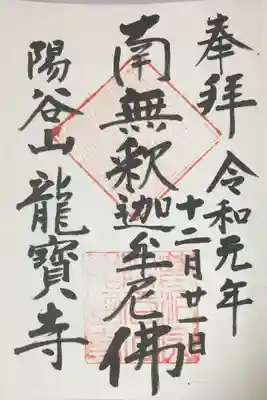 奉拝
令和元年
十二月廿一日
南無釈迦牟尼佛
陽谷山龍寳寺